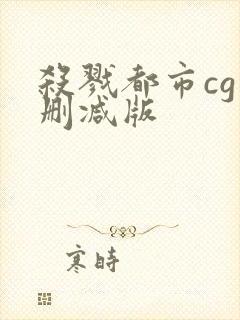 殺戮都市cg
删减版
寒時